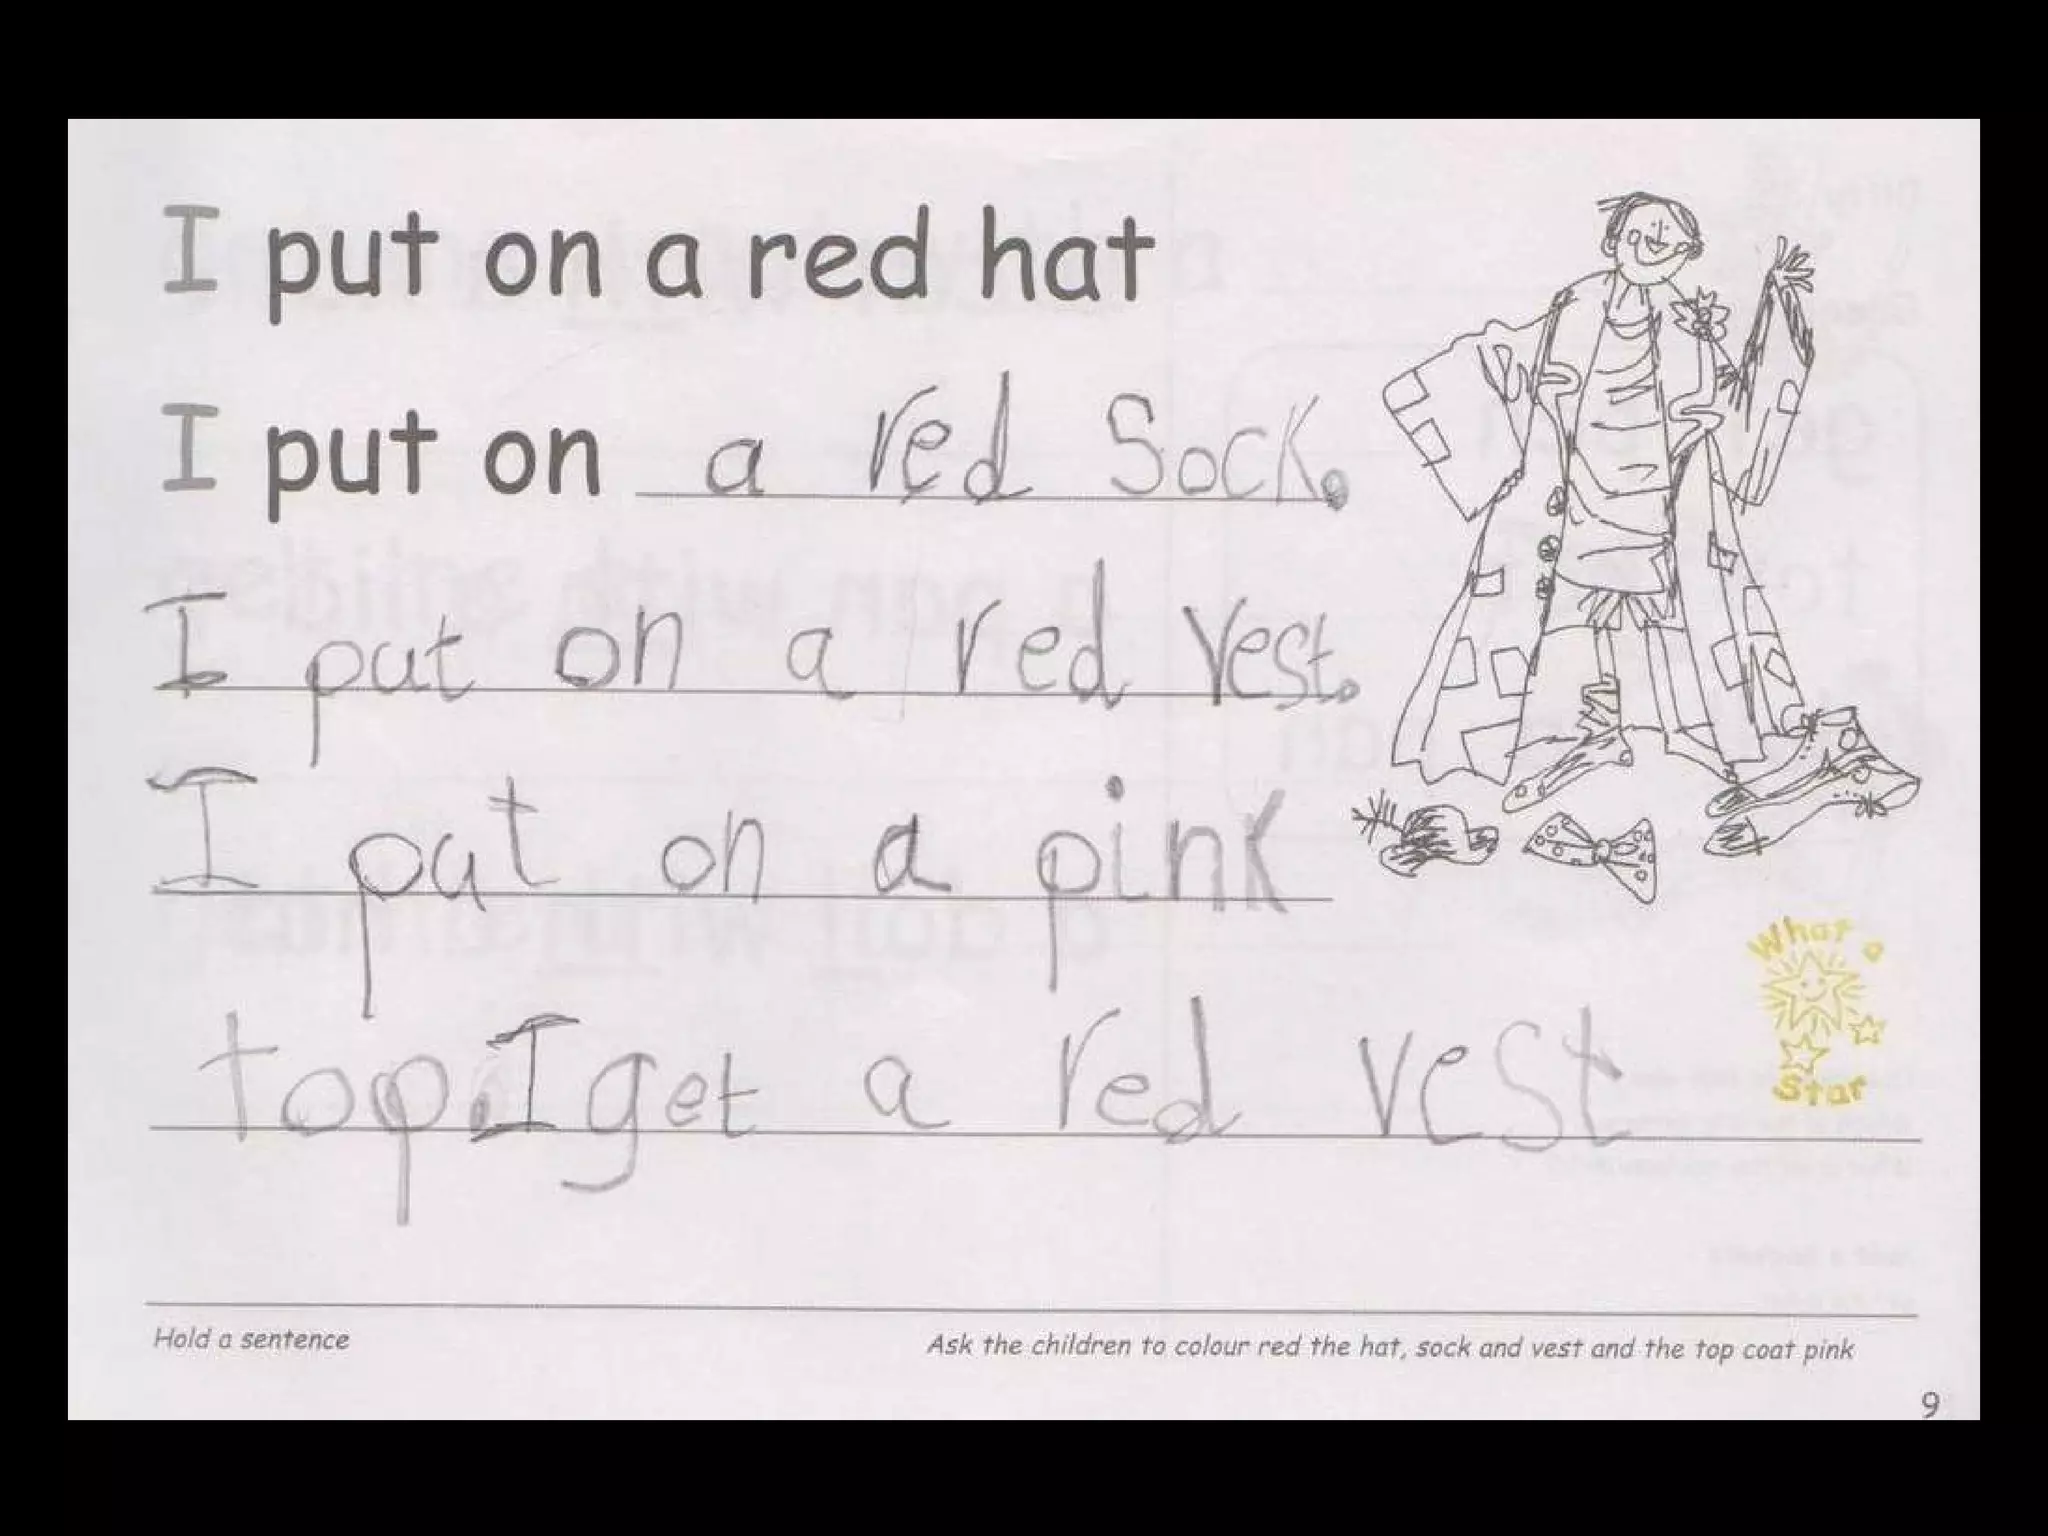 I put on a red hat
I put on a red sock.
I put on a red vest.
I put on a pink
top. I get a red vest
What a
Star
Hold a sentence
Ask the children to colour red the hat, sock and vest and the top coat pink
9